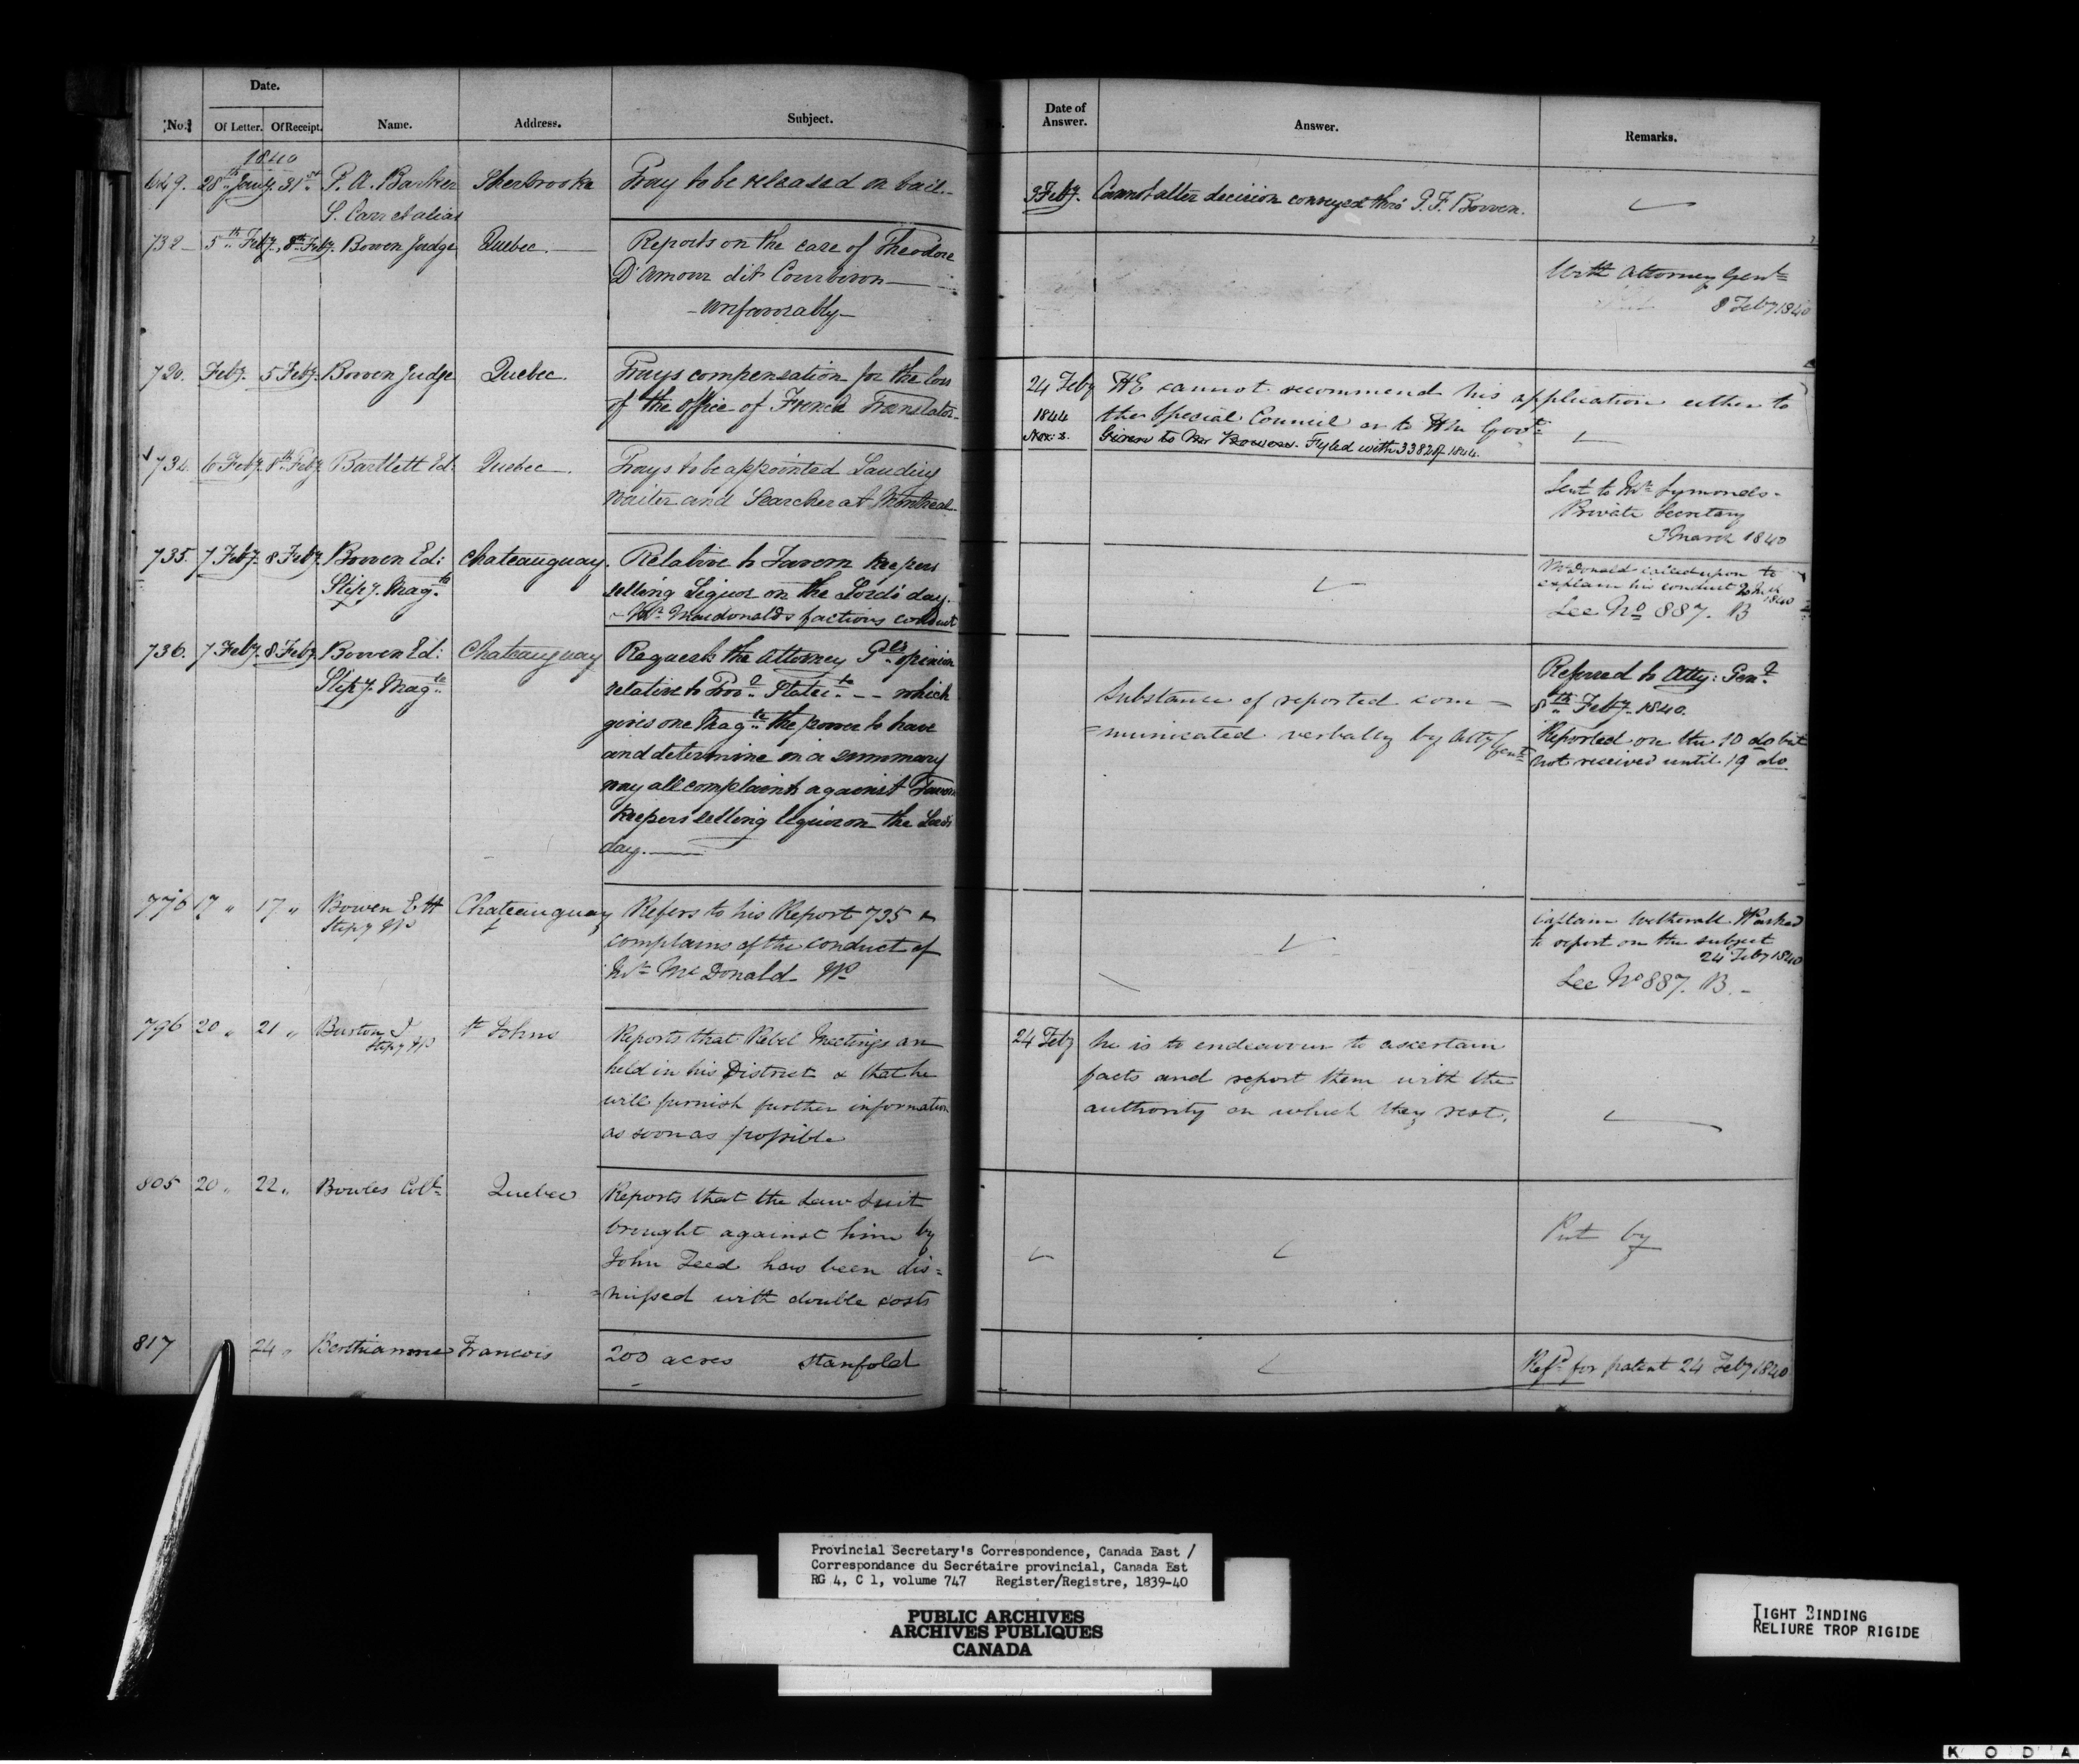 Date.
No. Of Letter. Of Receipt. Name. Address. Subject.
Date of Answer. Answer. Remarks.
1840
649. 28th Jany 31st P. A. Barker Sherbrooke Pray to be released on bail.
S. Carr et alias
3 Feby. Cannot alter decision conveyed thro' G. F. Bowen.
732 5th Feby. 8th Feby. Bowen Judge Quebec. Reports on the case of Theodore
D'amour dit Courberon
- unfavorably -
With Attorney Genl
8 Feby 1840
720. Feby. 5 Feby. Bowen Judge Quebec. Prays compensation for the loss
of the office of French Translator.
24 Feby HE cannot recommend his application either to
1844 the Special Council or to HM Govt
Nov: 2. Given to Mr Bowen. Fyled with 3382 of 1844.
734. 6 Feby. 8th Feby Bartlett Ed. Quebec. Prays to be appointed Landing
waiter and Searcher at Montreal.
Sent to Mr Symonds.
Private Secretary
3 March 1840
735. 7 Feby. 8 Feby. Bowen Ed: Chateauguay. Relative to Tavern keepers
Stipy. Magte selling Liquor on the Lord's day.
- Mr. Macdonald's factious conduct
McDonald called upon to
explain his conduct 2 Mch
1840
See No 887. B
736. 7 Feby. 8 Feby. Bowen Ed: Chateauguay Requests the Attorney Gls opinion
Stipy. Magte relative to Provl Statute - - which
gives one Magte the power to hear
and determine in a summary
way all complaints against Tavern
keepers selling liquor on the Lords
day.
Substance of reported com
=municated verbally by Atty Genl
Referred to Atty: Genl
8th Feby. 1840.
Reported on the 10 do but
not received until 19 do
776 17 " 17 " Bowen E H Chateauguay Refers to his Report 735 &
Stipy JP complains of the conduct of
Mr McDonald JP
Captain Wetherall JP asked
to report on the subject
24 Feby 1840
See No 887. B. -
796 20 " 21 " Burton J St Johns Reports that Rebel Meetings are
Stipy JP held in his District & that he
will furnish further information
as soon as possible
24 Feby he is to endeavour to ascertain
facts and report them with the
authority on which they rest.
805 20 " 22 " Bowles Coln Quebec Reports that the law suit
brought against him by
John Teed has been dis=
=missed with double costs
Put by
817 24 " Berthiaume Francois 200 acres Stanfold
Refd for patent 24 Feby 1840
Provincial Secretary's Correspondence, Canada East /
Correspondance du Secrétaire provincial, Canada Est
RG 4, C 1, volume 747 Register/Registre, 1839-40
PUBLIC ARCHIVES
ARCHIVES PUBLIQUES
CANADA
TIGHT BINDING
RELIURE TROP RIGIDE
K O D A